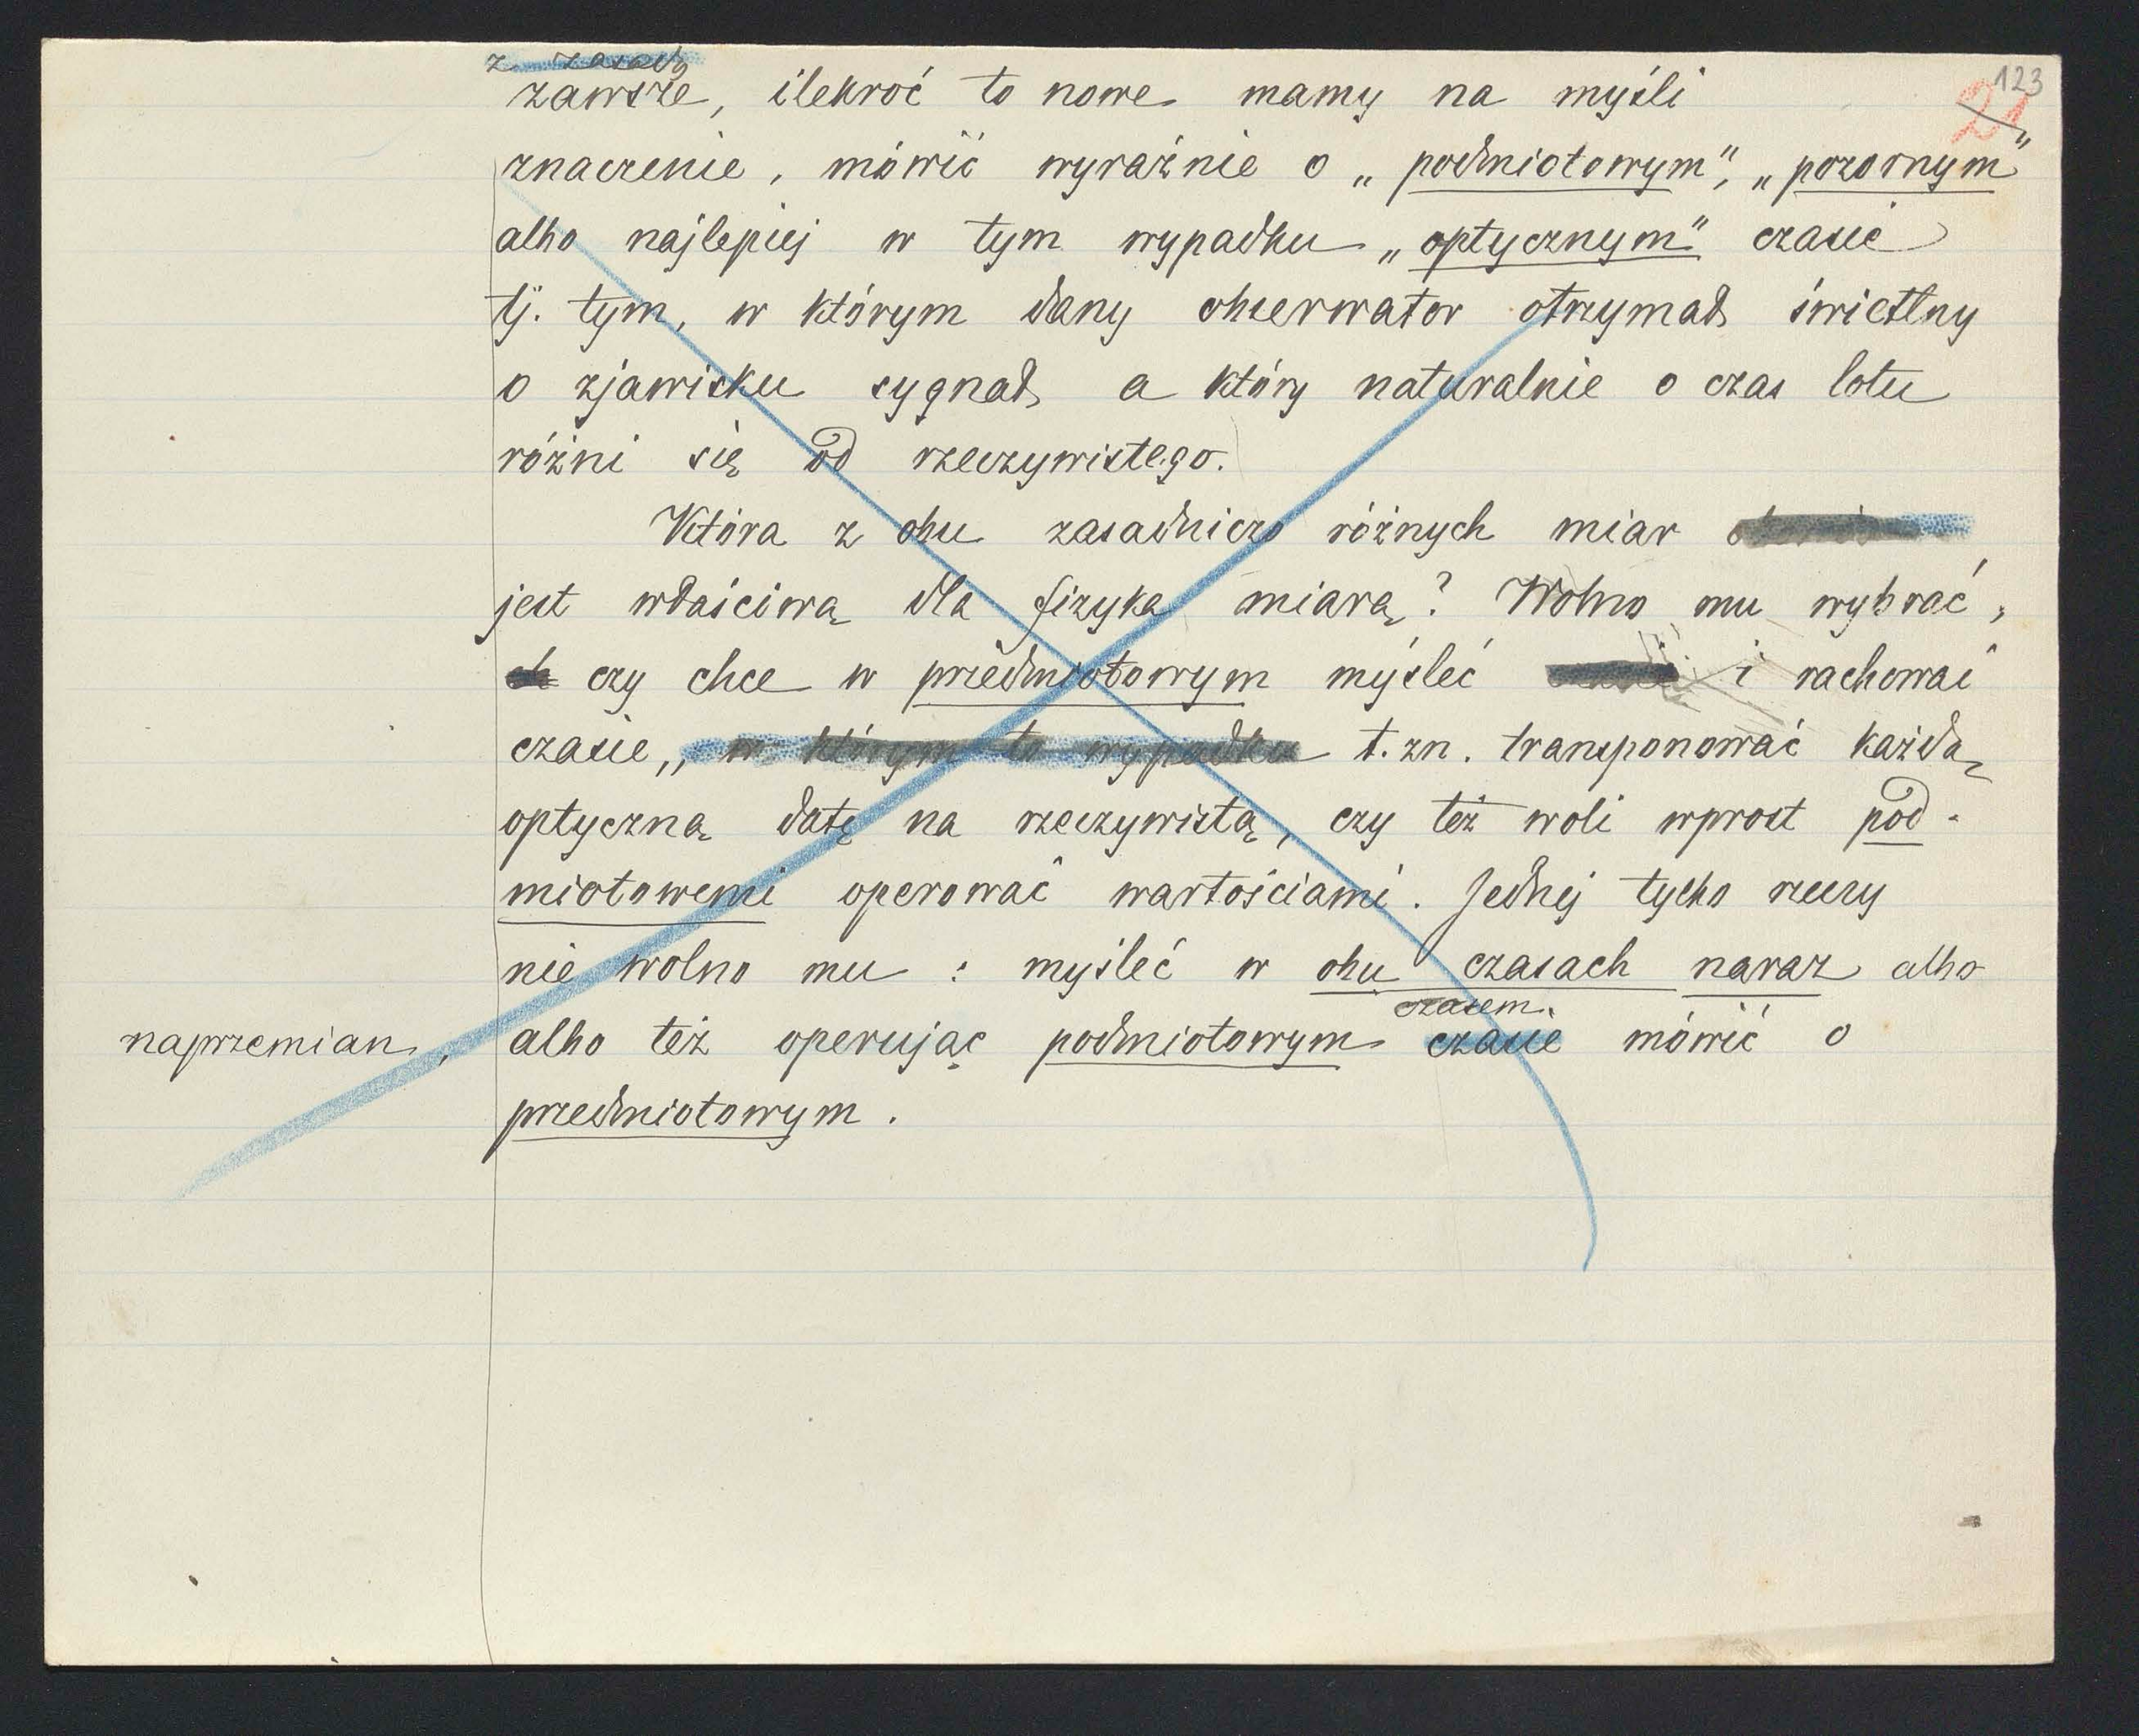 123
21
z zasady
zawsze, ilekroć to nowe mamy na myśli
znaczenie, mówić wyraźnie o „podmiotowym”, „pozornym”
albo najlepiej w tym wypadku „optycznym” czasie
tj. tym, w którym dany obserwator otrzymał świetlny
o zjawisku sygnał a który naturalnie o czas lotu
różni się od rzeczywistego.
Która z obu zasadniczo różnych miar
jest właściwą dla fizyka miarą? Wolno mu wybrać,
czy chce w przedmiotowym myśleć i rachować
czasie,, w którym to wypadku t.zn. transponować każdą
optyczną datę na rzeczywistą, czy też woli wprost pod-
miotowemi operować wartościami. Jednej tylko rzeczy
nie wolno mu : myśleć w obu czasach naraz albo
czasem
naprzemian, albo też operując podmiotowym czasie mówić o
przedmiotowym.